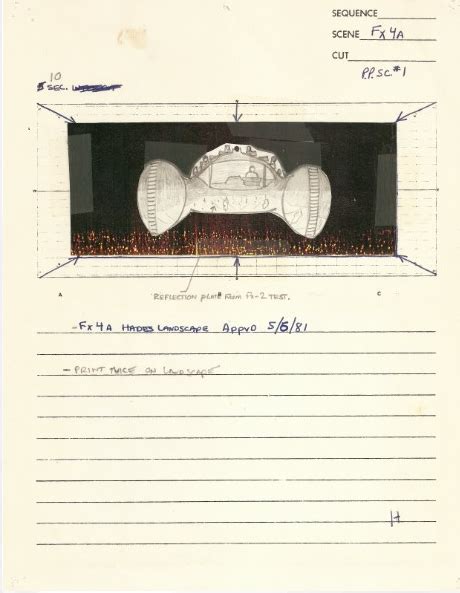 SEQUENCE
SCENE FX 4A
CUT
P.P. SC. #1
10
5 SEC.
A
C
REFLECTION PLATE FROM FX-2 TEST.
- FX 4A HADES LANDSCAPE APPVD 5/6/81
- PRINT TWICE ON LANDSCAPE
H